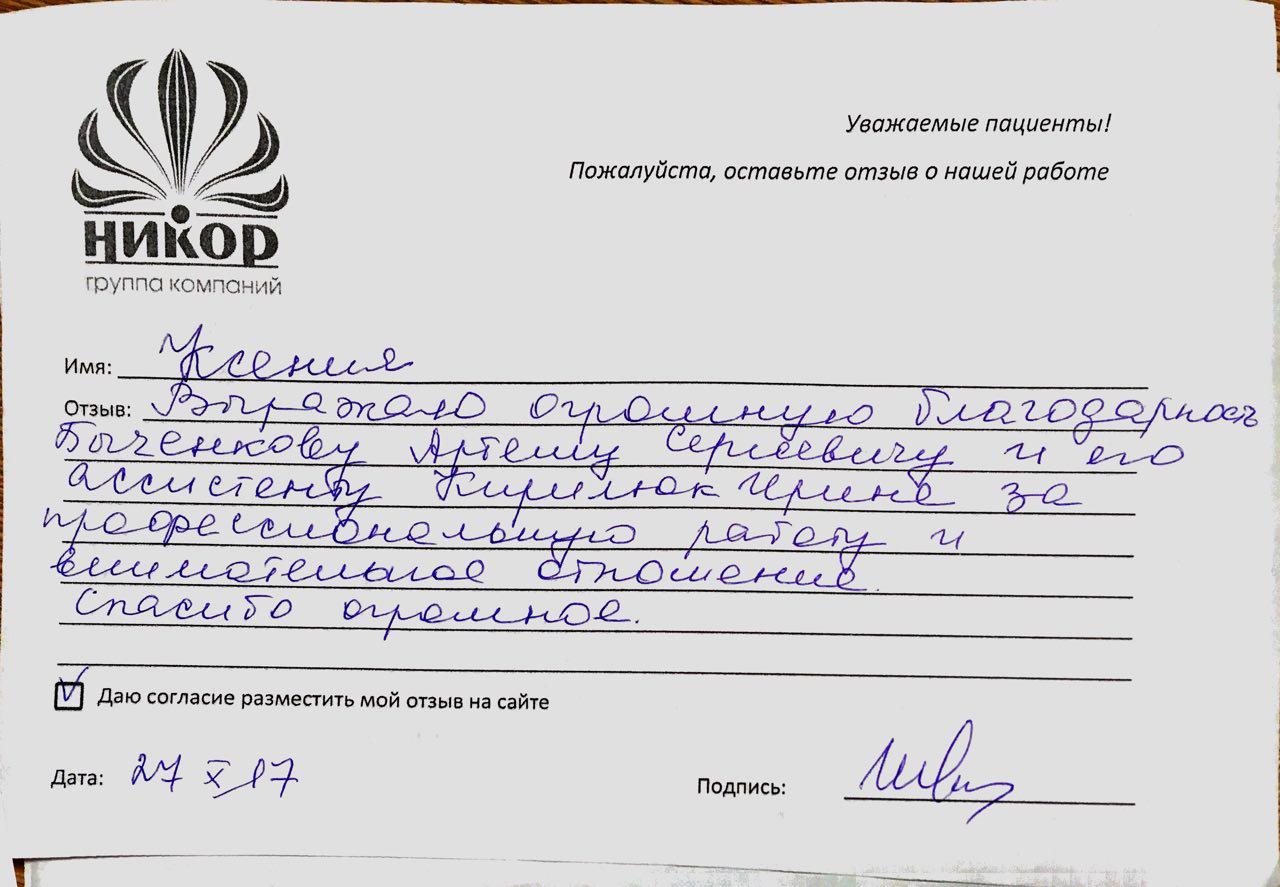 никор
группа компаний
Уважаемые пациенты!
Пожалуйста, оставьте отзыв о нашей работе
Имя: Ксения
Отзыв: Выражаю огромную благодарность
Быченкову Артему Сергеевичу и его
ассистенту Кирилюк Ирине за
профессиональную работу и
внимательное отношение.
Спасибо огромное.
V Даю согласие разместить мой отзыв на сайте
Дата: 27 X 17
Подпись: